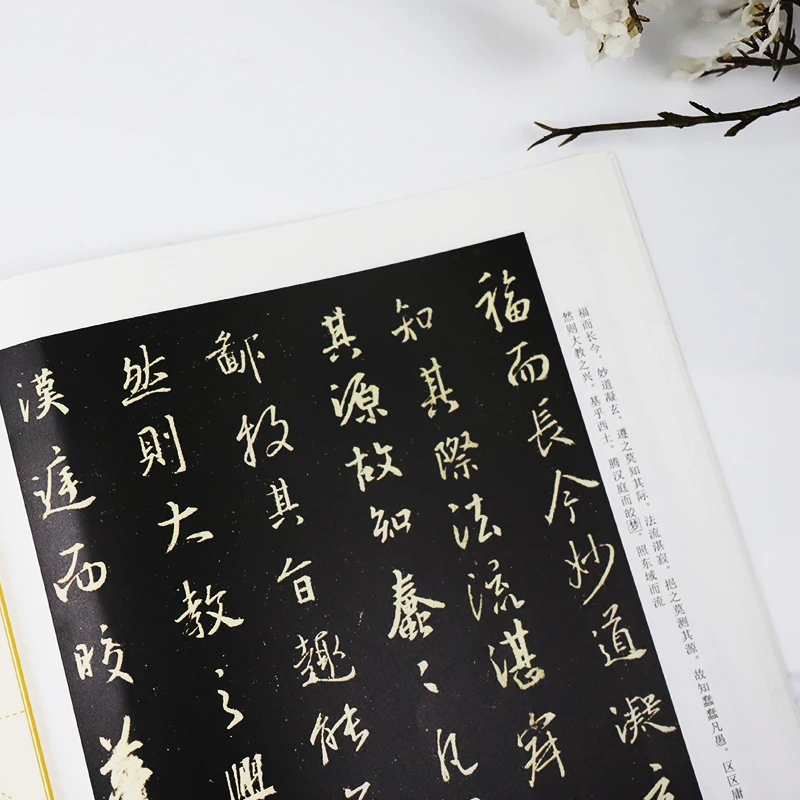 福而长今。妙道凝玄。遵之莫知其际。法流湛寂。挹之莫测其源。故知蠢蠢凡愚。区区庸
然则大教之兴。基乎西土。腾汉庭而皎梦。照东域而流
福而長今妙道凝玄
知其際法流湛寂
其源故知蠢〻凡
鄙投其旨趣能
然則大教之興
漢庭而皎夢